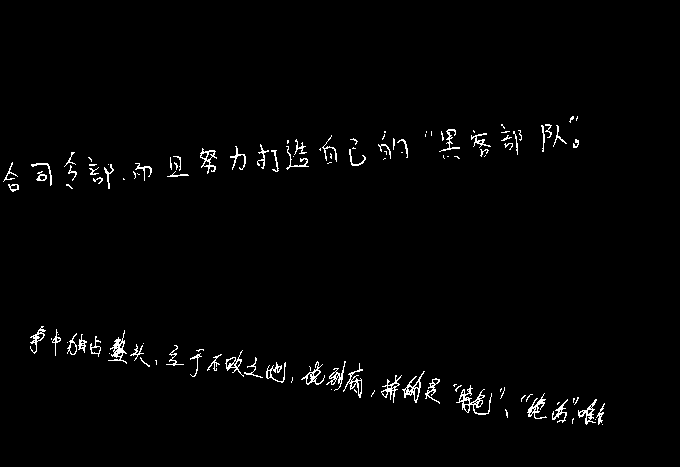 合司令部,而且努力打造自己的“黑客部队”。
争中独占鳌头、立于不败之地,说到底,拼的是“特色”、“绝活”,唯